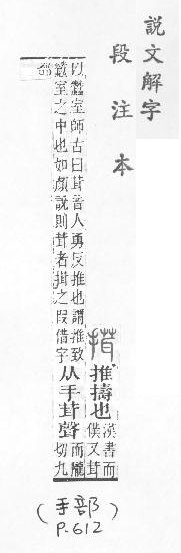 説文解字
段注本
搑 推擣也 漢書而
僕又茸
以蠶室師古曰茸音人勇反推也謂推致
蠶室之中也如顔說則茸者搑之叚借字
从手茸聲 而隴
切九
部
(手部)
P.612